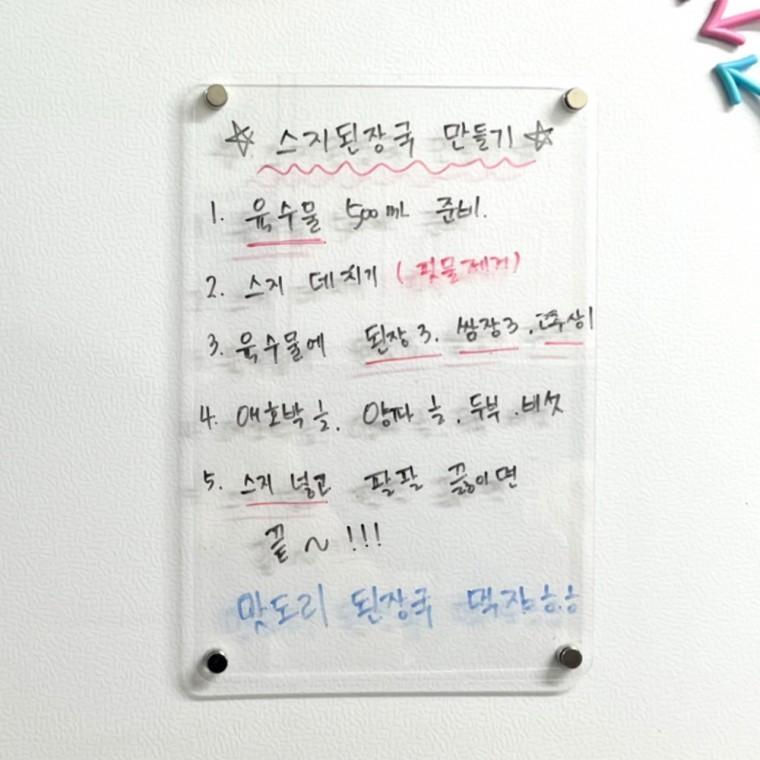 ☆ 스지된장국 만들기 ☆
1. 육수물 500ml 준비.
2. 스지 데치기 (핏물제거)
3. 육수물에 된장3. 쌈장3.
4. 애호박 ½. 양파 ½. 두부. 버섯
5. 스지 넣고 팔팔 끓이면
끝~!!!
맛도리 된장국 먹자ㅎ.ㅎ